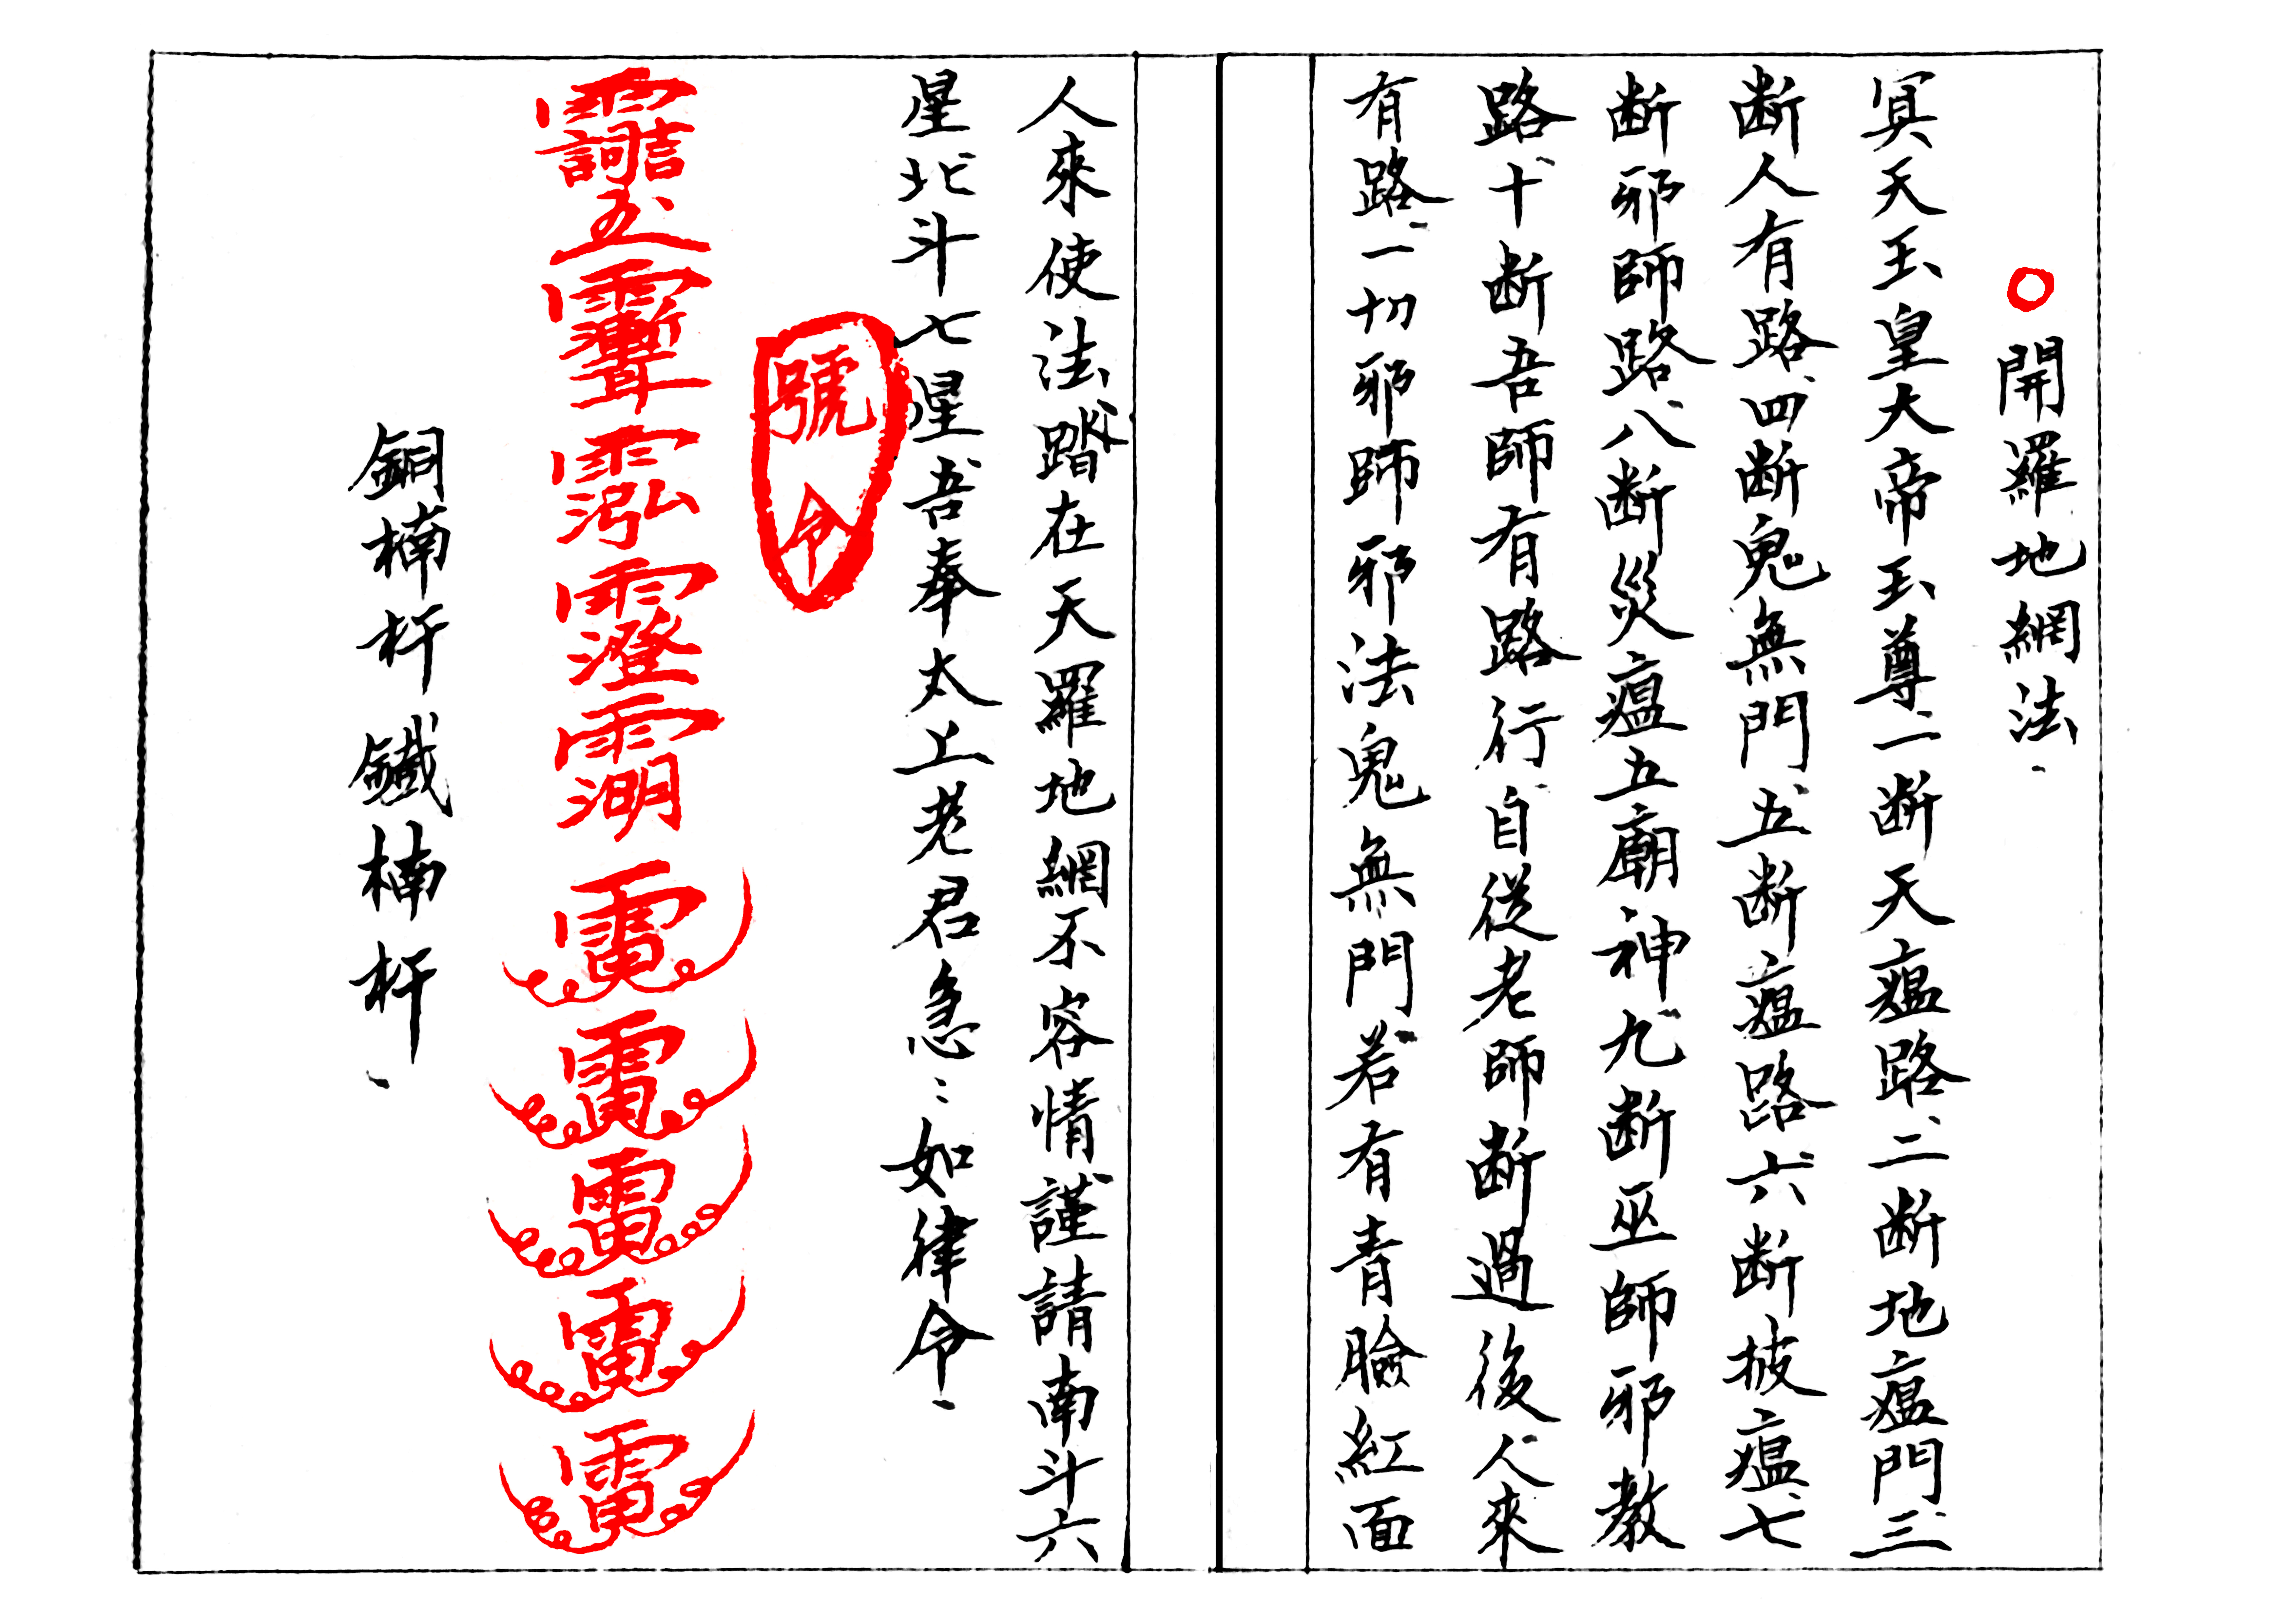 ○開羅地網法、
冥天玉皇大帝玉尊、一断天瘟路、二断地瘟門、三
断人有路、四断鬼無門、五断瘟路、六断披瘟、七
断邪師路、八断災瘟五廟神、九断巫師邪教
路、十断吾師有路行、自從老師断過後、人來
有路、一切邪師邪法鬼無門、若有青臉紅面
人來使法、踏在天羅地網不容情、謹請南斗六
星、北斗七星、吾奉太上老君急〻如律令、
號令
銅楠杆鐵楠杆、